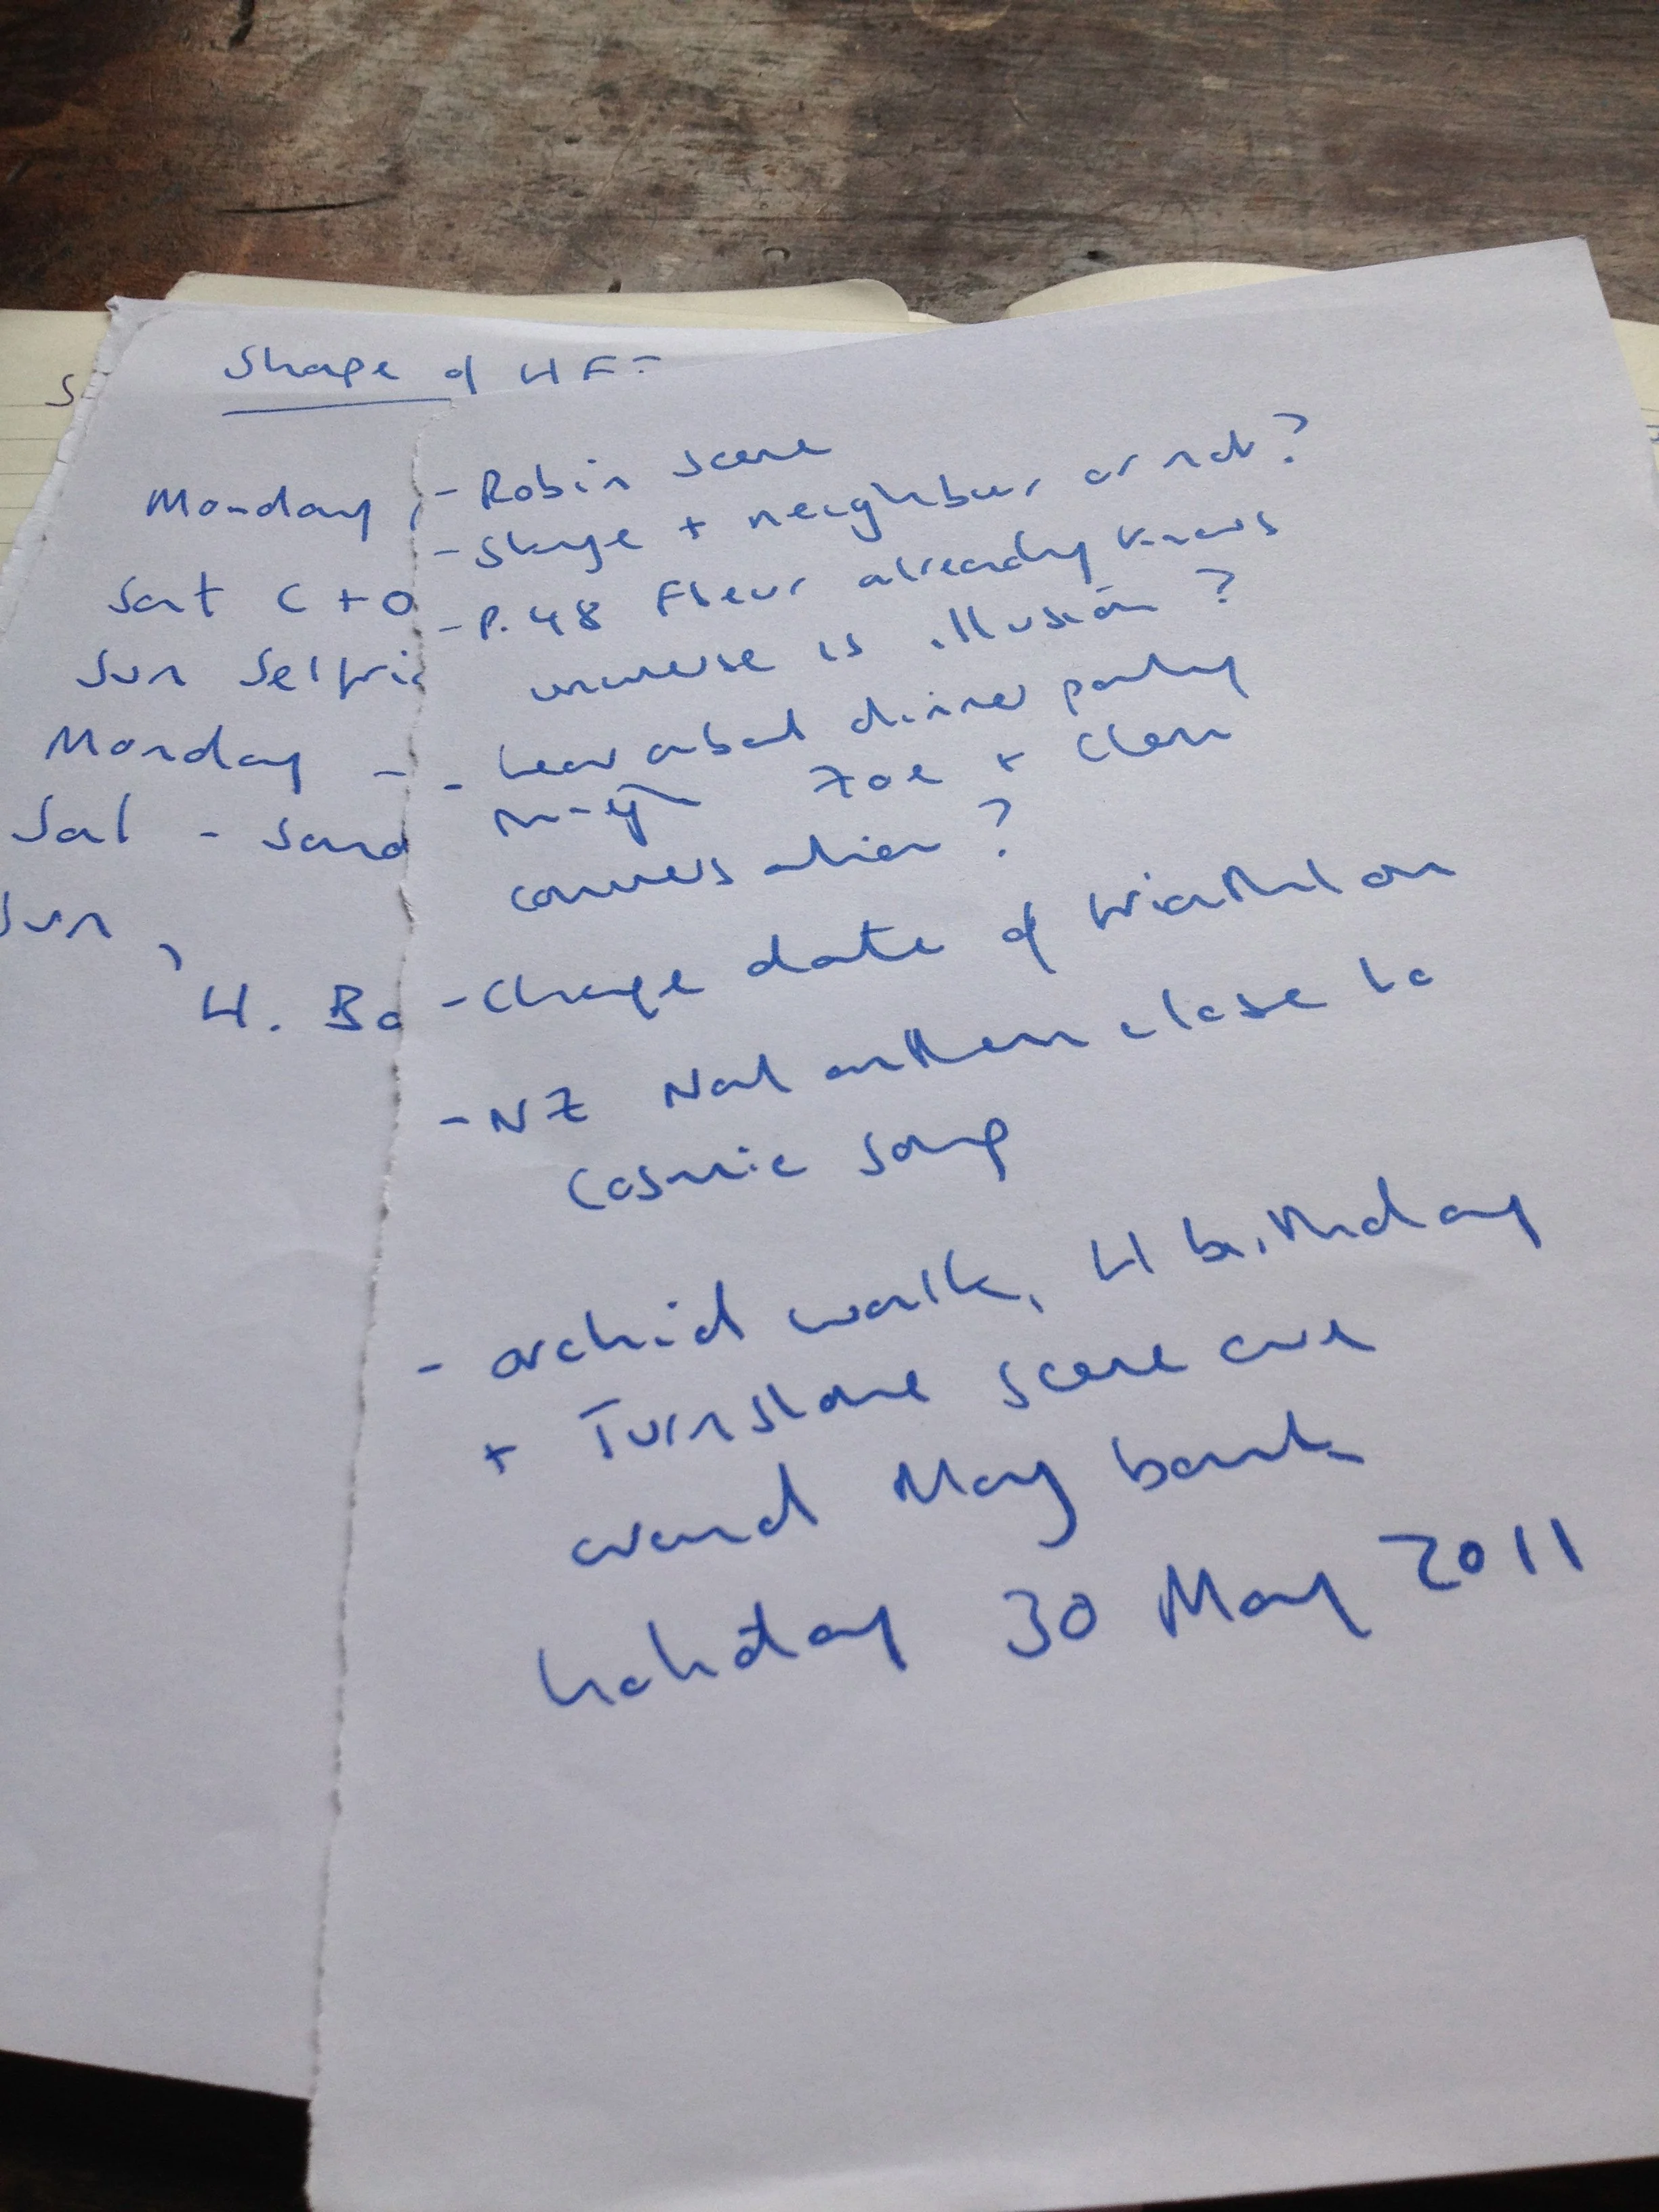 Shape of HF
Monday
Sat C + O
Sun Selfri
Monday -
Sat - Sand
Sun
H. Bo
- Robin scene
- Skype + neighbour or not?
- P. 48 Fleur already knows
universe is illusion?
- hear about dinner party
through Zoe + Clem
conversation?
- Change date of triathlon
- NZ Nat anthem close to
Cosmic song
- orchid walk, H birthday
+ Turnstone scene are
around May bank
holiday 30 May 2011